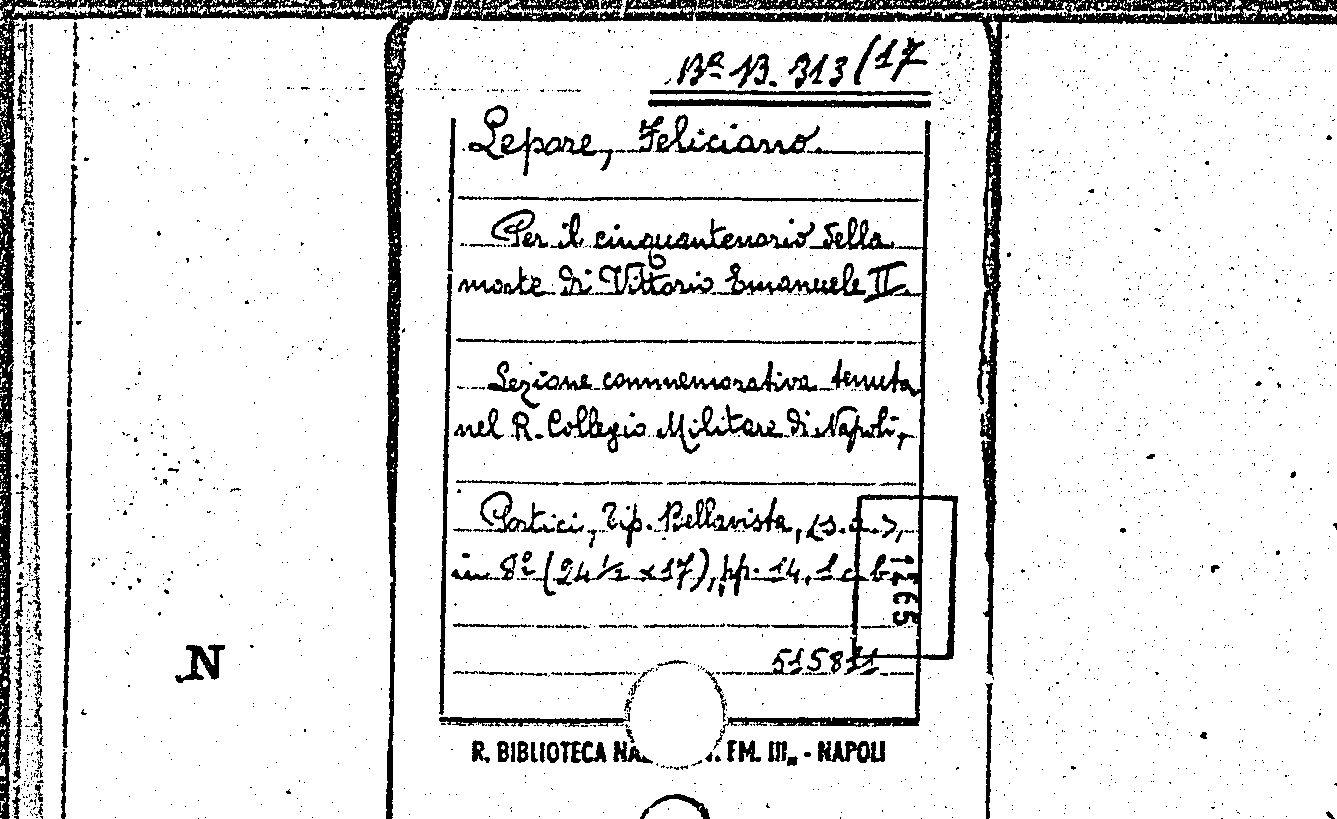 Bª B. 313/17
Lepore, Feliciano.
Per il cinquantenario della
morte di Vittorio Emanuele II.
Lezione commemorativa tenuta
nel R. Collegio Militare di Napoli,
Portici, Tip. Bellavista, (s.a.),
in 8º (24 ½ x 17), pp. 14, 1 c. b.
1265
515811
N
R. BIBLIOTECA EM. III„ - NAPOLI